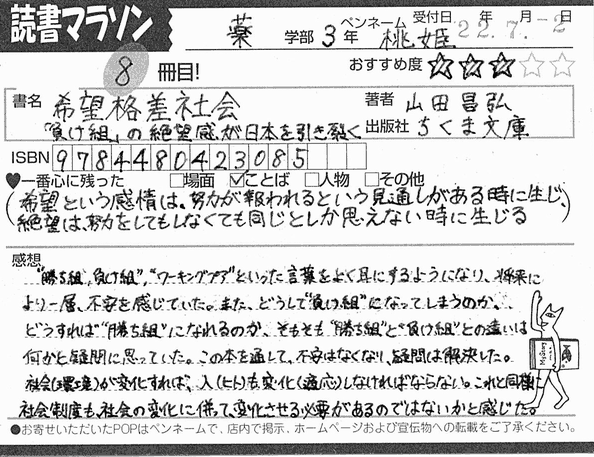 読書マラソン
薬 学部 3年 ペンネーム 桃姫 受付日 22年7月-2日
8 冊目!
おすすめ度 ★★★☆☆
書名 希望格差社会
「負け組」の絶望感が日本を引き裂く
著者 山田昌弘
出版社 ちくま文庫
ISBN 9784480423085
♥一番心に残った □場面 ☑ことば □人物 □その他
(希望という感情は、努力が報われるという見通しがある時に生じ、
絶望は、努力をしてもしなくても同じとしか思えない時に生じる)
感想
"勝ち組,負け組","ワーキングプア"といった言葉をよく耳にするようになり、将来に
より一層、不安を感じていた。また、どうして"負け組"になってしまうのか、
どうすれば"勝ち組"になれるのか、そもそも"勝ち組"と"負け組"との違いは
何かと疑問に思っていた。この本を通して、不安はなくなり、疑問は解決した。
社会(環境)が変化すれば、人(ヒト)も変化(適応)しなければならない。これと同様に
社会制度も、社会の変化に併って、変化させる必要があるのではないかと感じた。
●お寄せいただいたPOPはペンネームで、店内で掲示、ホームページおよび宣伝物への転載をご了承ください。